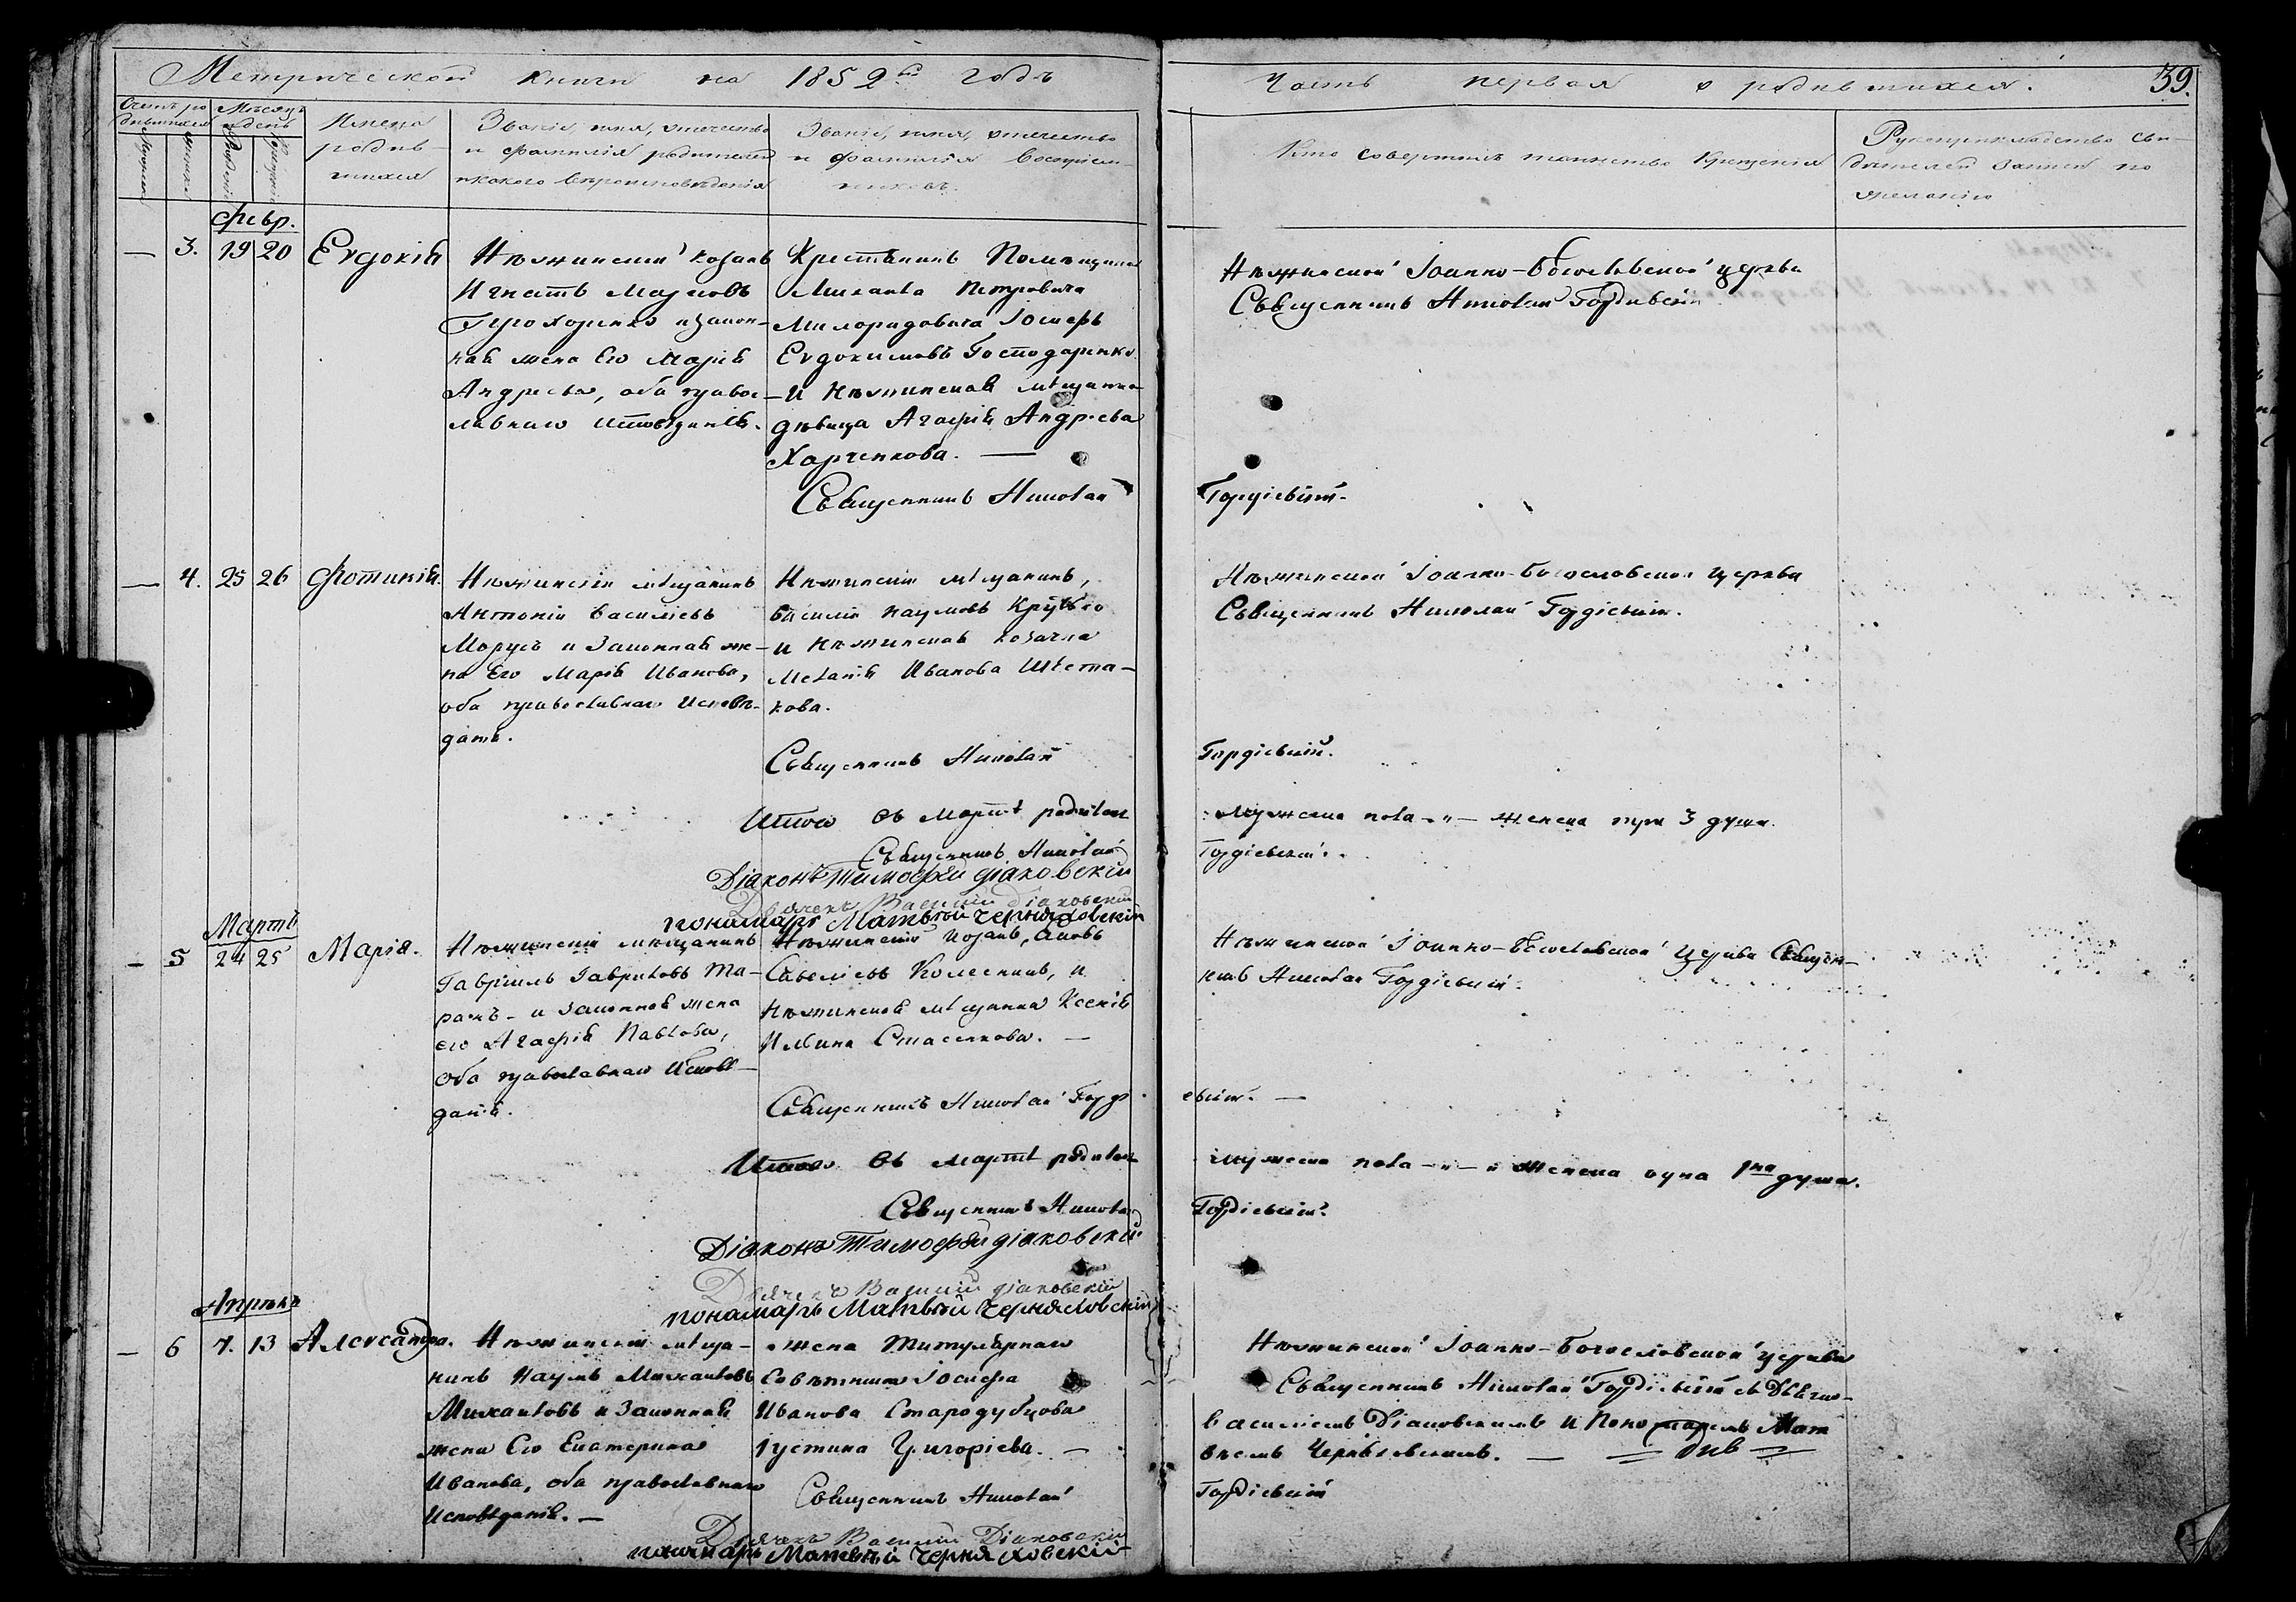 Метрической книги на 1852й годъ
Часть первая о родившихся.
39.
Счетъ родившихся
Мѣсяцъ и день
Имена родившихся
Званіе, имя, отечество и фамилія родителей и какого вѣроисповѣданія
Званіе, имя, отечество и фамилія воспріемниковъ.
Кто совершалъ таинство крещенія
Рукоприкладство свидѣтелей записи по желанію
Февр.
— 3. 19 20 Евдокія
Нѣжинскій козакъ
Игнатъ Марковъ
и закон-
ная жена Его Марія
Андреева, оба правос-
лавнаго исповѣданія.
Крестьянинъ Помѣщика
Михаила Петровича
Милорадовича Іосифъ
Евдокимовъ Господаренко
и Нѣжинская мѣщанка
дѣвица Агафія Андреева
Харченкова. —
Нѣжинской Іоанно-Богословской церкви
Священникъ Николай Гордіевскій
Священникъ Николай Гордіевскій.
— 4. 25 26 Фотинія.
Нѣжинскій мѣщанинъ
Антоній Васильевъ
Морусъ и Законная же-
на Его Марія Иванова,
оба православнаго исповѣ-
данія.
Нѣжинскій мѣщанинъ,
Василій Наумовъ
и Нѣжинская козачка
Меланія Иванова Шеста-
кова.
Нѣжинской Іоанно-Богословской церкви
Священникъ Николай Гордіевскій.
Священникъ Николай Гордіевскій.
Итого въ Мартѣ родилось мужеска пола -„- женска три 3 души.
Священникъ Николай Гордіевскій.
Діаконъ Тимофей Діаковскій
Дьячекъ Василій Діаковскій
пономарь Матвѣй Черняховскій
Мартъ
— 5 24 25 Марія.
Нѣжинскій мѣщанинъ
Гавріилъ Гавриловъ Та-
ранъ - и законная жена
его Агафія Павлова,
оба православнаго исповѣ-
данія.
Нѣжинскій козакъ,
Савеліевъ Колесникъ, и
Нѣжинская мѣщанка Ксенія
Ильина Стасенкова. —
Нѣжинской Іоанно-Богословской церкви Священ-
никъ Николай Гордіевскій.
Священникъ Николай Гордіевскій. —
Итого въ Мартѣ родилось мужеска пола -„- женска одна 1на душа.
Священникъ Николай Гордіевскій.
Діаконъ Тимофей Діаковскій
Дьячекъ Василій Діаковскій
пономарь Матвѣй Черняховскій
Апрѣль
— 6 7. 13 Александра.
Нѣжинскій мѣща-
нинъ Наумъ Михаиловъ
Михаиловъ и Законная
жена Его Екатерина
Иванова, оба православнаго
исповѣданія. —
жена Титулярнаго
Совѣтника Іосифа
Иванова Стародубцова
Іустина Григоріева. —
Нѣжинской Іоанно-Богословской церкви
Священникъ Николай Гордіевскій съ Дьячко-
Василіемъ Діаковскимъ и Пономаремъ Мат
вѣемъ Черняховскимъ. —
Священникъ Николай Гордіевскій
Дьячекъ Василій Діаковскій
пономарь Матвѣй Черняховскій